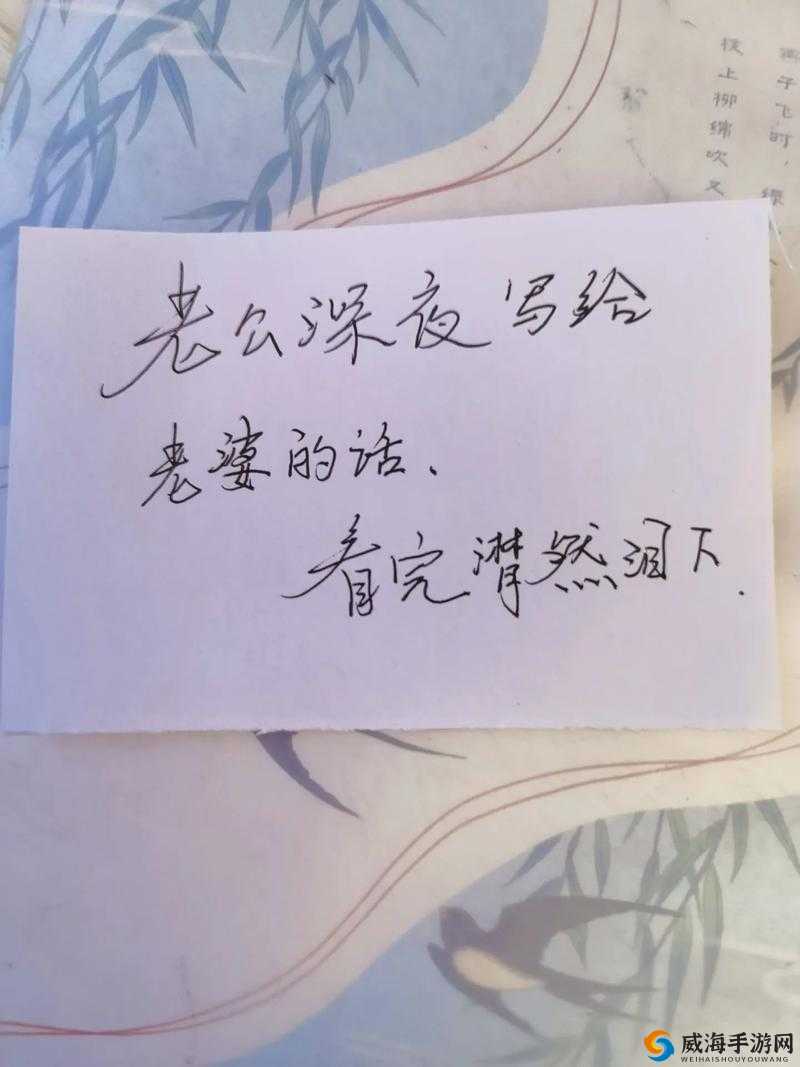 老公深夜写给
老婆的话、
看完潸然泪下.
燕子飞时,绿
枝上柳绵吹又
威海手游网
WEIHAISHOUYOUWANG